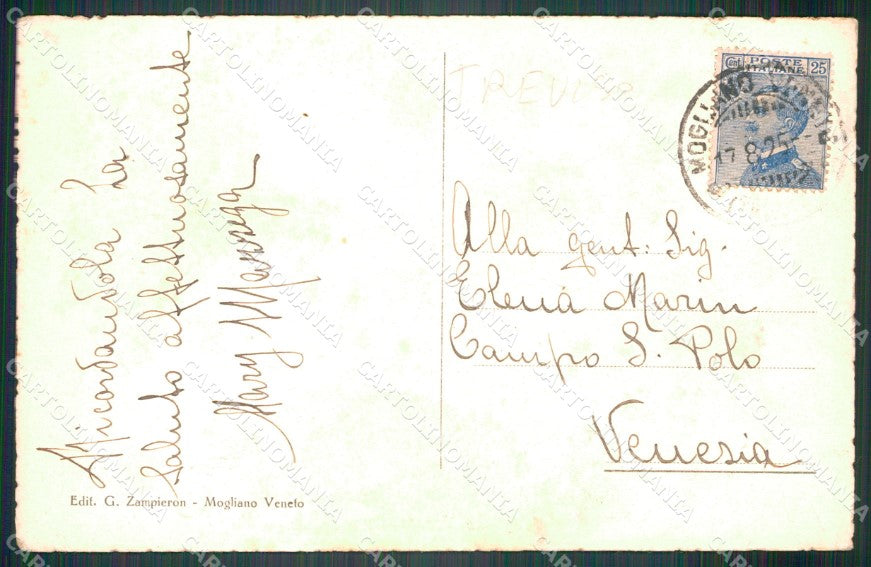 Ricordandola La
saluto affettuosamente
Mary
Edit. G. Zampieron - Mogliano Veneto
TREVISO
Cent POSTE ITALIANE 25
MOGLIANO VENETO
17.8.25
Alla gent: Sig.
Elena Marin
Campo S. Polo
Venezia
CARTOLINOMANIA